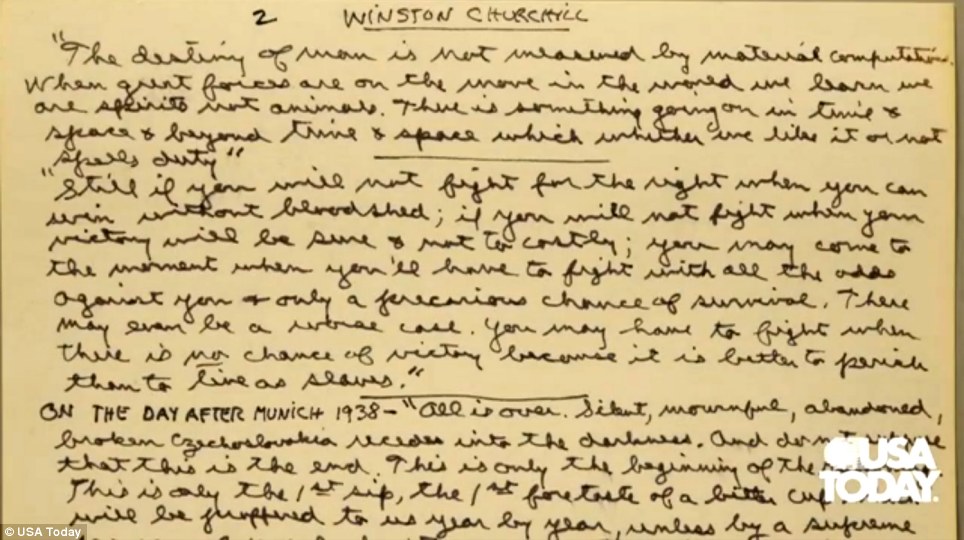 2 WINSTON CHURCHILL
"The destiny of man is not measured by material computation.
When great forces are on the move in the world we learn we
are spirits not animals. There is something going on in time &
space & beyond time & space which whether we like it or not
spells duty"
"Still if you will not fight for the right when you can
win without bloodshed; if you will not fight when your
victory will be sure & not to costly; you may come to
the moment when you'll have to fight with all the odds
against you & only a precarious chance of survival. There
may even be a worse case. You may have to fight when
there is no chance of victory because it is better to perish
than to live as slaves."
ON THE DAY AFTER MUNICH 1938 - "All is over. Silent, mournful, abandoned,
broken Czechoslovakia recedes into the darkness. And do not
that this is the end. This is only the beginning of the
This is only the 1st sip, the 1st foretaste of a bitter cup
will be proffered to us year by year, unless by a supreme
USA
TODAY.
© USA Today